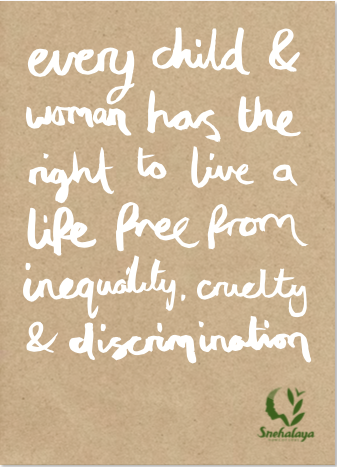 every child &
woman has the
right to live a
life free from
inequality, cruelty
& discrimination
Snehalaya